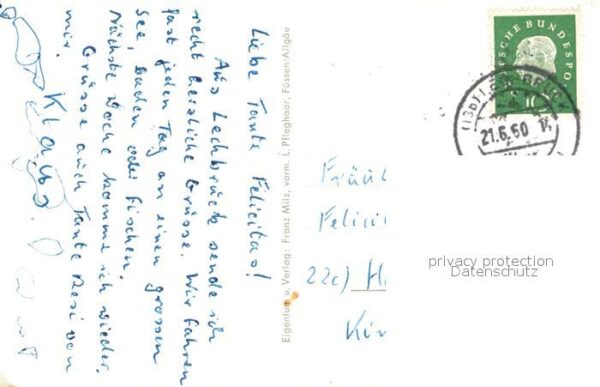 Liebe Tante Felicitas!
Aus Lechbruck sende ich
recht herzliche Grüsse. Wir fahren
fast jeden Tag an einen grossen
See, baden oder fischen.
Nächste Woche komme ich wieder.
Grüsse auch Tante Resi von
mir.
Klaus.
Eigentum u. Verlag: Franz Milz, vorm. L. Pfleghaar, Füssen-Allgäu
DEUTSCHE BUNDESPO
10
21.6.60
Fräul
Felici
22c) H
Kir
privacy protection
Datenschutz